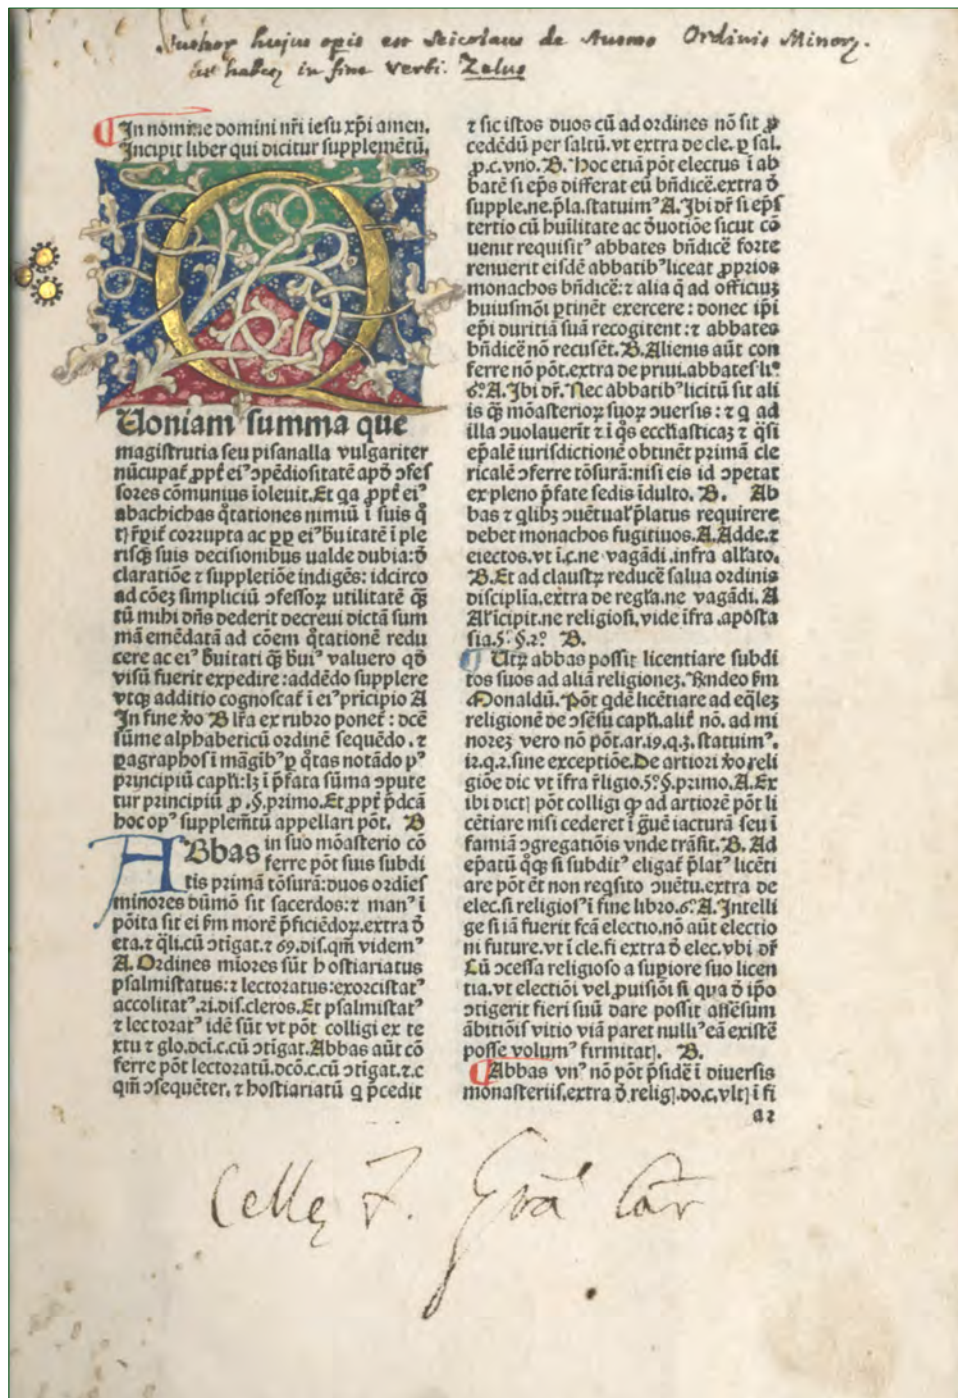 hujus opis est Nicolaus de Ausmo Ordinis Minorꝝ.
in fine verbi. Zelus
In nomine domini nr̄i iesu xp̄i amen.
Incipit liber qui dicitur supplemētū.
Uoniam summa que
magistrutia seu pisanalla vulgariter
nūcupat᷑ ꝓpt᷑ ei⁹ ↄpēdiositatē apđ ↄfes
sores cōmunius īoleuit. Et qa ꝓpt᷑ ei⁹
abachichas q̄tationes nimiū ī suis q̄
corrupta ac ꝓp ei⁹ b̄uitatē ī ple
risq̨ suis decisionibus ualde dubia: đ
claratiōe ⁊ suppletiōe indigēs: idcirco
ad cōeꝫ simpliciū ↄfessoꝝ utilitatē q̄ꝫ
tū mihi dn̄s dederit decreui dictā sum
mā emēdatā ad cōem q̄tationē redu
cere ac ei⁹ b̄uitati q̄ꝫ b̄ui⁹ valuero qđ
visū fuerit expedire: addēdo supplere
vtq̨ additio cognoscat᷑ ī ei⁹ pricipio A
In fine ꝟo B lr̄a ex rubro ponet᷑: dcē
sūme alphabeticū ordinē sequēdo. ⁊
ꝑagraphos ī māgib⁹ ꝑ q̄tas notādo p⁹
prīcipiū capl̄i: lꝫ ī p̄fata sūma ↄpute
tur principiū ꝓ .§. primo. Et ꝓpt᷑ p̄dcā
hoc op⁹ supplem̄tū appellari pōt. B
ABbas in suo mōasterio cō
ferre pōt suis subdi
tis primā tōsurā: duos ordīes
minores dūmō sit sacerdos: ⁊ man⁹ ī
pōita sit ei ẜm morē p̄ficiēdoꝝ. extra đ
eta. ⁊ q̄li. cū ↄtigat. ⁊ 69. dis. qm̄ videm⁹
A. Ordines mīores sūt hostiariatus
psalmistatus: ⁊ lectoratus: exorcistat⁹
accolitat⁹. 21. dis. cleros. Et psalmistat⁹
⁊ lectorat⁹ idē sūt vt pōt colligi ex te
xtu ⁊ glo. dc̄i. c. cū ↄtigat. Abbas aūt cō
ferre pōt lectoratū. dcō. c. cū ↄtigat. ⁊. c
qm̄ ↄsequēter. ⁊ hostiariatū q p̄cedit
⁊ sic istos duos cū ad ordines nō sit ꝓ
cedēdū per saltū. vt extra de cle. ꝑ sal.
ꝓ. c. vno. B. Hoc etiā pōt electus ī ab
batē si ep̄s differat eū bn̄dicē. extra đ
supple. ne. p̄la. statuim⁹ A. Ibi dr̄ si ep̄s
tertio cū huīlitate ac đuotiōe sicut cō
uenit requisit⁹ abbates bn̄dicē forte
renuerit eisdē abbatib⁹ liceat ꝓprios
monachos bn̄dicē: ⁊ alia q̄ ad officiuꝫ
huiusmōi ꝑtinēt exercere: donec ip̄i
ep̄i duritiā suā recogitent: ⁊ abbates
bn̄dicē nō recusēt. B. Alienis aūt con
ferre nō pōt. extra de priui. abbates li⁰
6⁰. A. Ibi dr̄. Nec abbatib⁹ licitū sit ali
is q̄ꝫ mōasterioꝝ suoꝝ ↄuersis: ⁊ q ad
illa ↄuolauerīt ⁊ ī q̄s eccl̄iasticaꝫ ⁊ q̄si
ep̄alē iurisdictionē obtinēt primā cle
ricalē ↄferre tōsurā: nisi eis id ↄpetat
ex pleno p̄fate sedis īdulto. B. Ab
bas ⁊ qlibꝫ ↄuētual᷑ p̄latus requirere
debet monachos fugitiuos. A. Adde. ⁊
eiectos. vt ī. c. ne vagādi. infra all̄ato.
B. Et ad claustꝝ reducē salua ordinis
disciplīa. extra de regl̄a. ne vagādi. A
Al̄ īcipit. ne religiosi. vide īfra. aposta
sia. 5⁰. §. 2⁰. B.
Utꝝ abbas possit licentiare subdi
tos suos ad aliā religioneꝫ. Rn̄deo ẜm
Monaldū. Pōt qdē licētiare ad eq̄leꝫ
religionē de ↄsēsu capl̄i. alit᷑ nō. ad mi
noreꝫ vero nō pōt. ar. 19. q. 3. statuim⁹.
12. q. 2. sine exceptiōe. De artiori ꝟo reli
giōe dic vt īfra r̄ligio. 5⁰. §. primo. A. Ex
ibi dictꝭ pōt colligi ꝙ ad artiorē pōt li
cētiare nisi cederet ī g̈uē iacturā seu ī
famiā ↄgregatiōis vnde trāsit. B. Ad
ep̄atū q̄q̨ si subdit⁹ eligat᷑ p̄lat⁹ licēti
are pōt ēt non reqsito ↄuētu. extra de
elec. si religios⁹ ī fine libro. 6⁰. A. Intelli
ge si iā fuerit fcā electio. nō aūt electio
ni future. vt ī cle. fi extra đ elec. vbi dr̄
Cū ↄcessa religioso a suꝑiore suo licen
tia. vt electiōi vel ꝓuisiōi si qua đ ip̄o
ↄtigerit fieri suū dare possit assēsum
ābitiōis vitio viā paret nulli⁹ eā existē
posse volum⁹ firmitatꝭ. B.
Abbas vn⁹ nō pōt p̄sidē ī diuersis
monasteriis. extra đ religꝭ. do. c. vltꝭ ī fi
a2